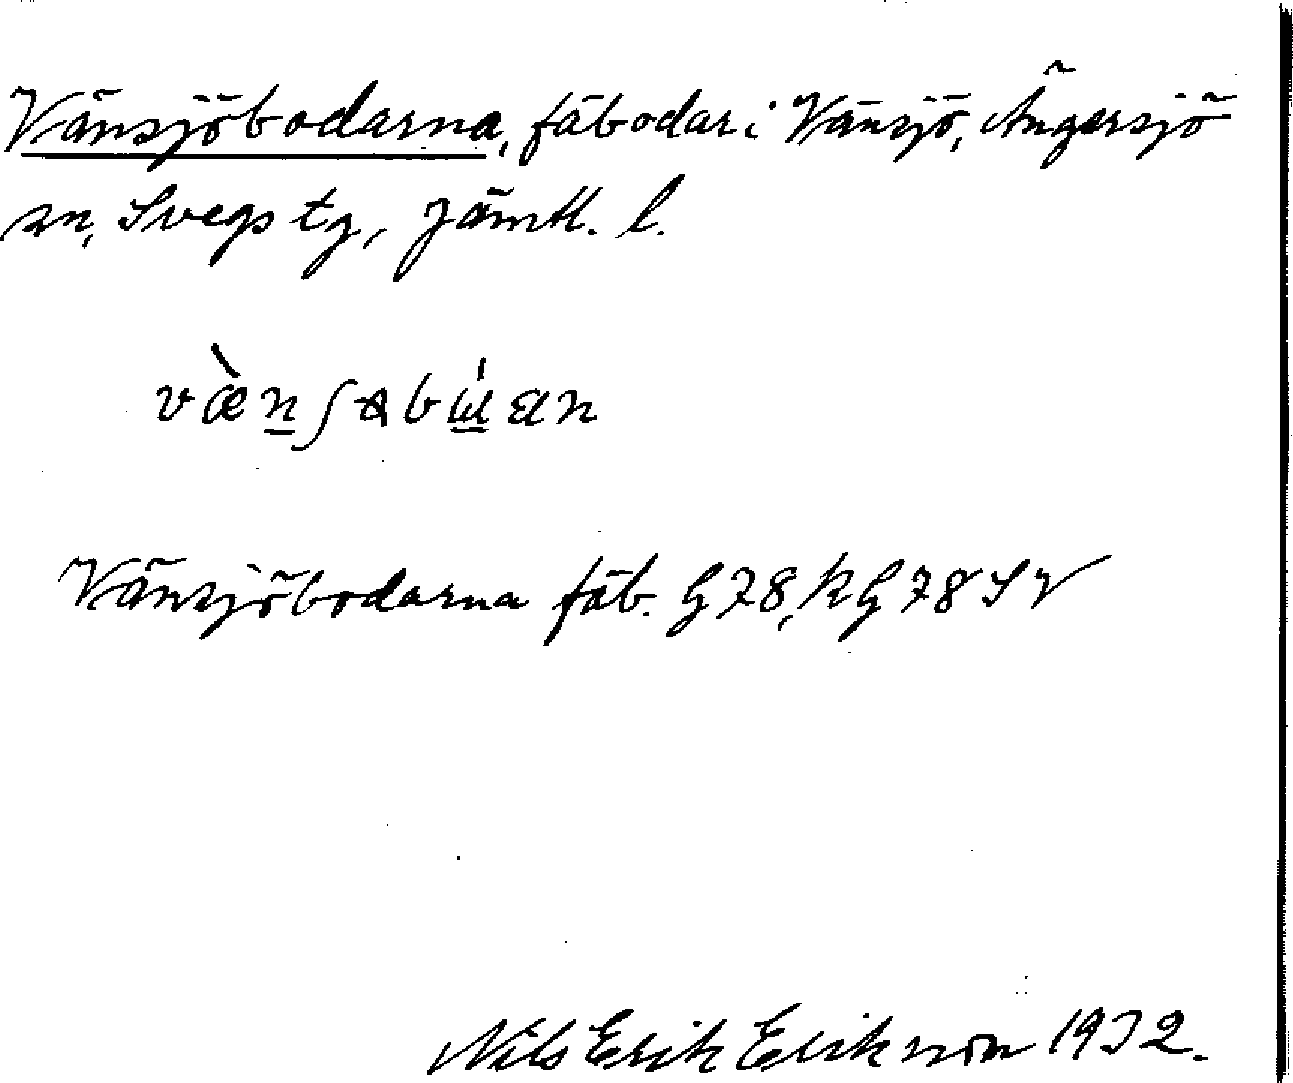 Vänsjöbodarna, fäbodar i Vänsjö, Ängersjö
sn, Svegs tg, Jämtl. l.
Vänsjöbodarna fäb. G 78, KG 78 SV
Nils Erik Erikson 1932.